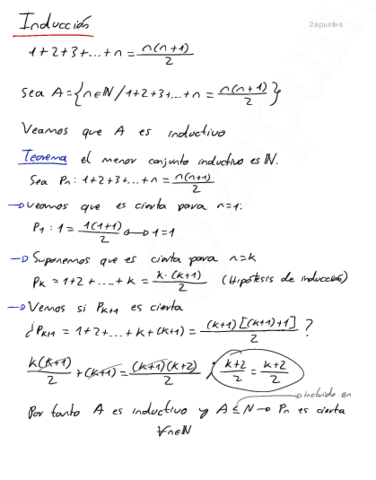 Inducción
2apuntes
1+2+3+...+n = n(n+1)/2
Sea A={n∈ℕ / 1+2+3+...+n = n(n+1)/2}
Veamos que A es inductivo
Teorema el menor conjunto inductivo es ℕ.
Sea Pn: 1+2+3+...+n = n(n+1)/2
→ Veamos que es cierta para n=1:
P1: 1 = 1(1+1)/2 → 1=1
→ Suponemos que es cierta para n=k
Pk = 1+2+...+k = k·(k+1)/2 (Hipótesis de inducción)
→ Vemos si Pk+1 es cierta
¿Pk+1 = 1+2+...+k+(k+1) = (k+1)[(k+1)+1]/2 ?
k(k+1)/2 + (k+1) = (k+1)(k+2)/2 ; k+2/2 = k+2/2
incluido en
Por tanto A es inductivo y A ⊆ N → Pn es cierta
∀n∈N